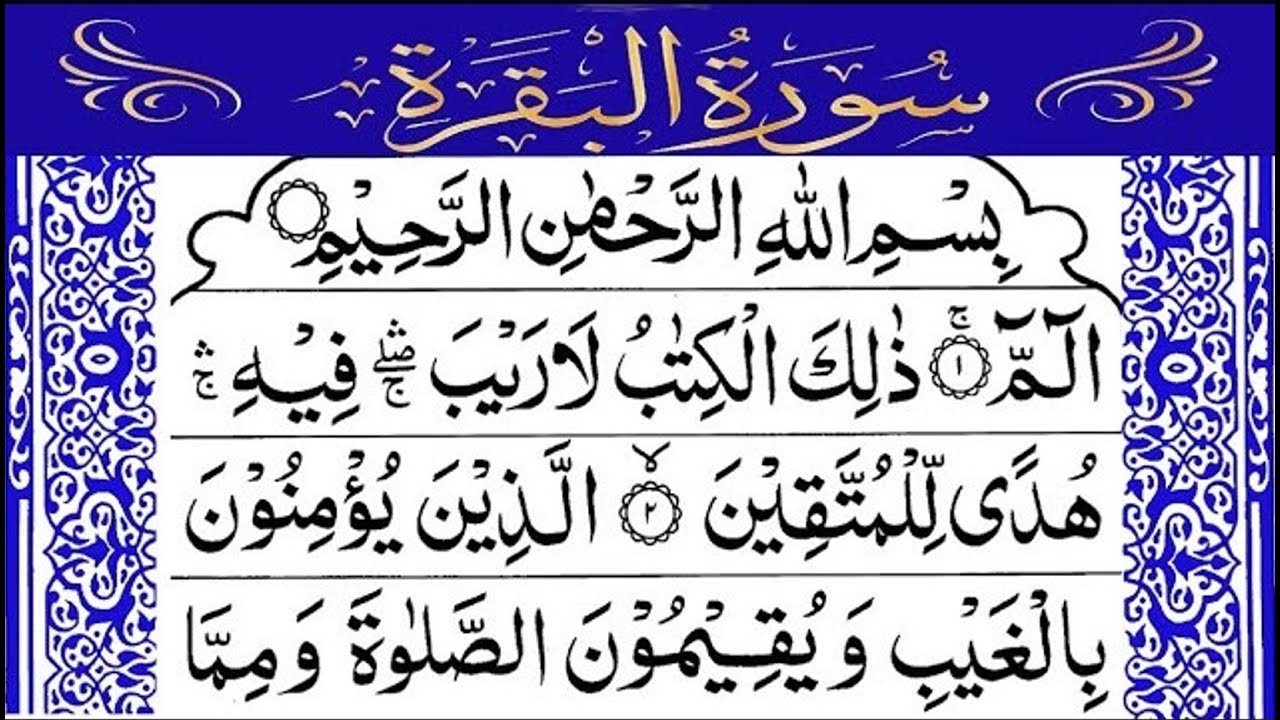 سُورَةُ الْبَقَرَةِ
بِسْمِ اللهِ الرَّحْمٰنِ الرَّحِيْمِ
الٓمّٓ ۚ‏ ١ ذٰلِكَ الْكِتٰبُ لَا رَيْبَ ۛۖۚ فِيْهِ ۛۚ
هُدًى لِّلْمُتَّقِيْنَ ۙ‏ ٢ الَّذِيْنَ يُؤْمِنُوْنَ
بِالْغَيْبِ وَيُقِيْمُوْنَ الصَّلٰوةَ وَمِمَّا